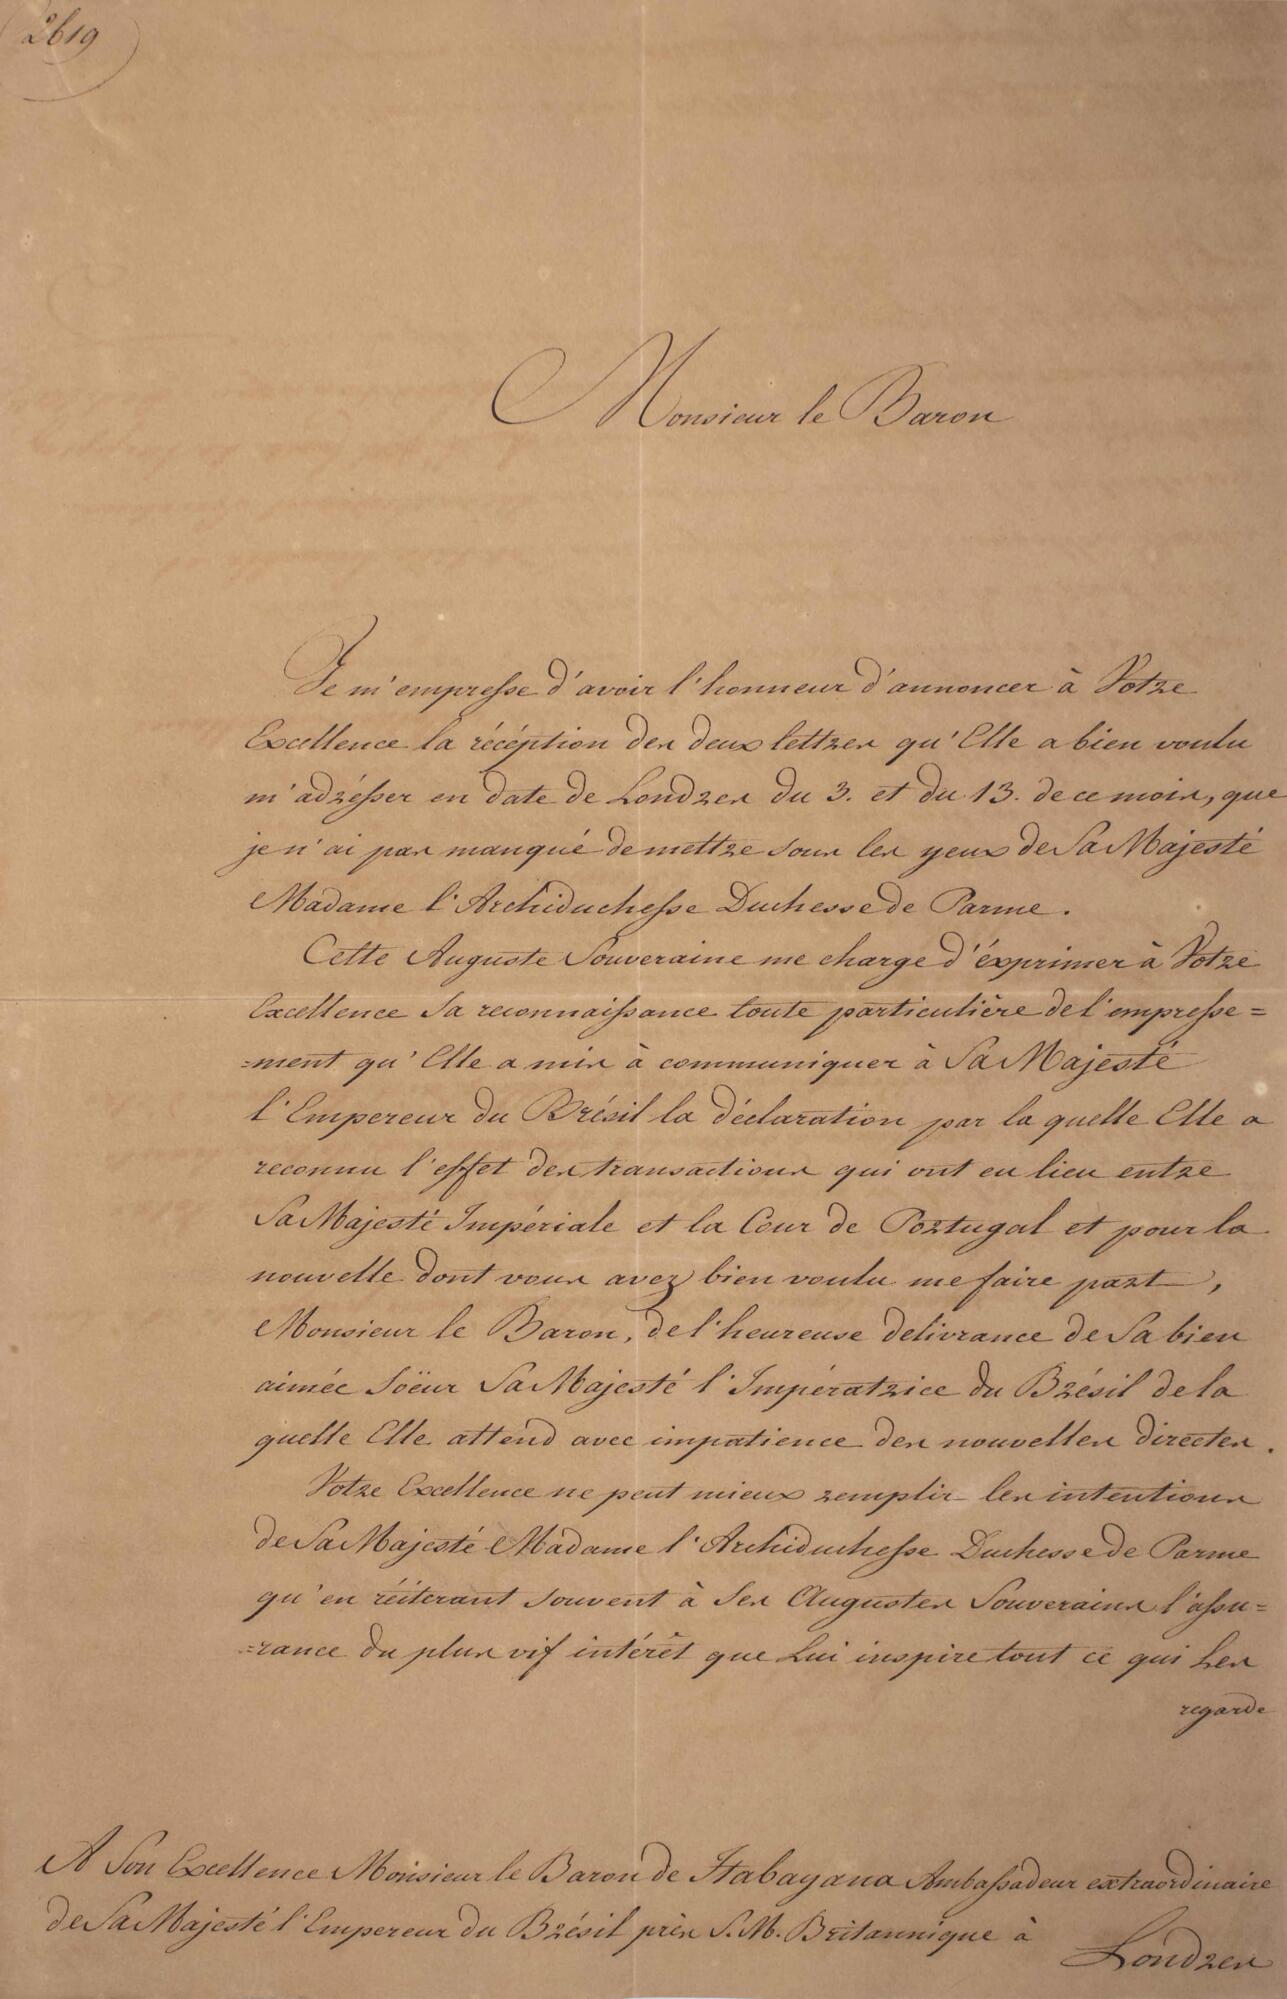 2619
Monsieur le Baron
Je m'empresse d'avoir l'honneur d'annoncer à Votre
Excellence la récéption des deux lettres qu'Elle a bien voulu
m'adrésser en date de Londres du 3. et du 13. de ce mois, que
je n'ai pas manqué de mettre sous les yeux de Sa Majesté
Madame l'Archiduchesse Duchesse de Parme.
Cette Auguste Souveraine me charge d'éxprimer à Votre
Excellence Sa reconnaissance toute particulière de l'empresse=
=ment qu'Elle a mis à communiquer à Sa Majesté
l'Empereur du Brésil la déclaration par la quelle Elle a
reconnu l'effet des transactions qui ont eu lieu entre
Sa Majesté Impériale et la Cour de Portugal et pour la
nouvelle dont vous avez bien voulu me faire part,
Monsieur le Baron, de l'heureuse delivrance de Sa bien
aimée Soëur Sa Majesté l'Impératrice du Brésil de la
quelle Elle attend avec impatience des nouvelles directes.
Votre Excellence ne peut mieux remplir les intentions
de Sa Majesté Madame l'Archiduchesse Duchesse de Parme
qu'en réiterant souvent à Ses Augustes Souverains l'assu=
=rance du plus vif intérêt que Lui inspire tout ce qui Les
regarde
A Son Excellence Monsieur le Baron de Itabayana Ambassadeur extraordinaire
de Sa Majesté l'Empereur du Brésil près S. M. Britannique à
Londres